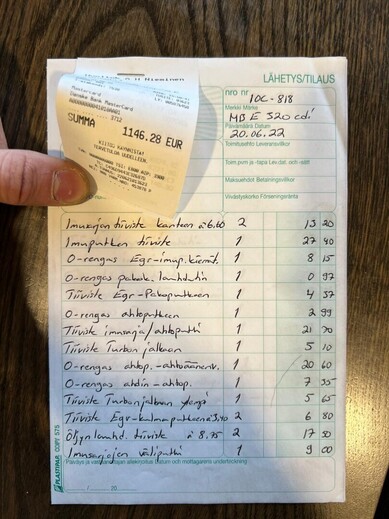 LÄHETYS/TILAUS
nro nr 10C-818
Merkki Märke
MB E 320 cdi
Päivämäärä Datum
20.06.22
Toimitusehto Leveransvillkor
Maksuehdot Betalningsvillkor
Viivästyskorko Förseningsränta
Mastercard
Danske Bank MasterCard
3712
SUMMA 1146.28 EUR
KIITOS KÄYNNISTÄ!
TERVETULOA UUDELLEEN.
Imusarjan tiiviste kanteen á 6,60 2 13 20
Imuputken tiiviste 1 27 40
O-rengas Egr-imup. kiemit. 1 8 15
O-rengas pakok. lauhdutin 1 0 97
Tiiviste Egr-Pakoputkeen 1 4 37
O-rengas ahtoputkeen 2 99
Tiiviste imusarja/ahtoputki 1 21 70
Tiiviste Turbon jalkaan 1 5 10
O-rengas ahtop.-ahtoäänenv. 1 20 60
O-rengas ahdin-ahtop. 1 7 35
Tiiviste Turbonjalkaan 1 5 65
Tiiviste Egr-kulmaputkeen á 3,40 2 6 80
Öljynlauhd. tiiviste á 8,75 2 17 50
Imusarjojen väliputki 1 9 00
PLASTIPAP, ODIPI 575